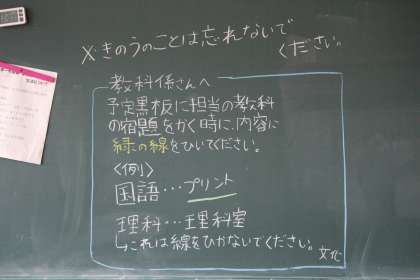 X・きのうのことは忘れないで
ください。
教科係さんへ
予定黒板に担当の教科
の宿題をかく時に、内容に
緑の線をひいてください。
〈例〉
国語…プリント
理科…理科室
これは線をひかないでください。
文化